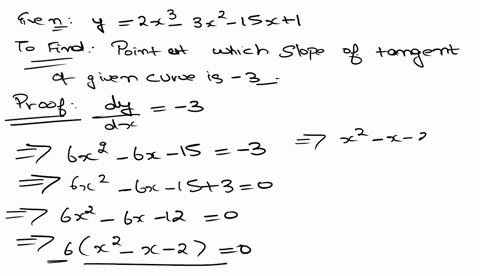 Given: y = 2x³ - 3x² - 15x + 1
To Find: Point at which slope of tangent
of given curve is -3.
Proof: dy/dx = -3
⇒ 6x² - 6x - 15 = -3
⇒ 6x² - 6x - 15 + 3 = 0
⇒ 6x² - 6x - 12 = 0
⇒ 6(x² - x - 2) = 0
⇒ x² - x -